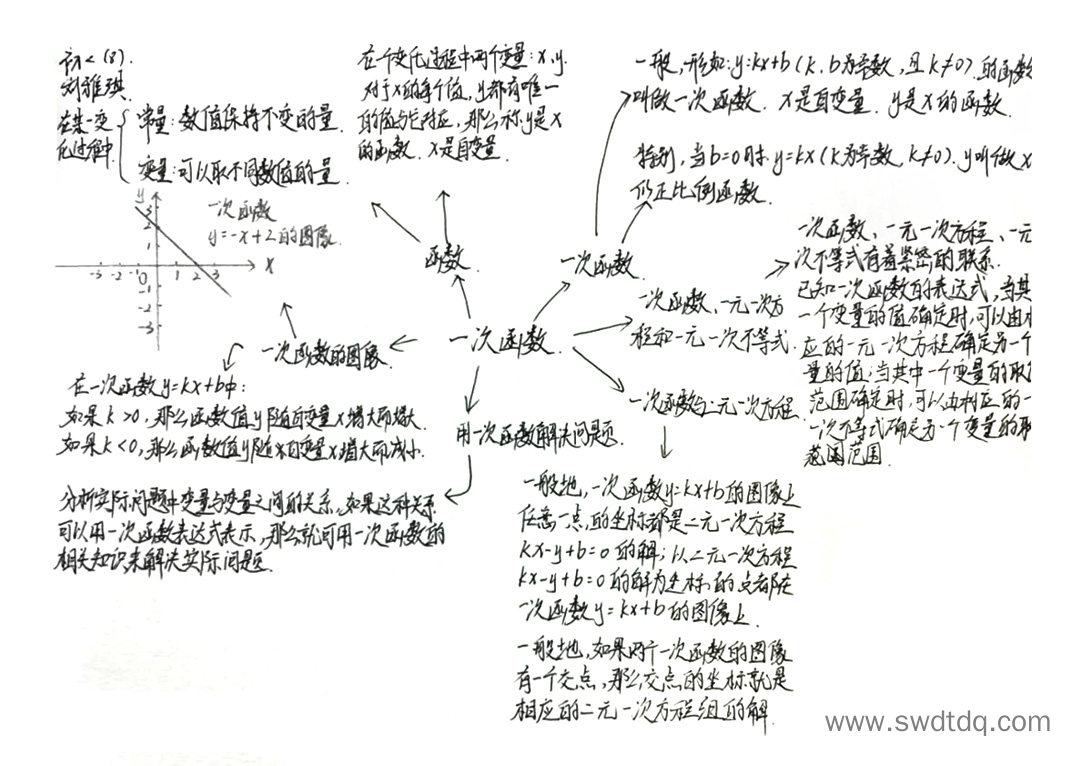 初二(8).
刘雅琪.
在某一变
化过程中
常量:数值保持不变的量.
变量:可以取不同数值的量
在一个变化过程中两个变量:x,y.
对于x的每个值,y都有唯一
的值与它对应,那么称y是x
的函数.x是自变量.
一般,形如:y=kx+b(k,b为常数,且k≠0).的函数
叫做一次函数.x是自变量.y是x的函数.
特别,当b=0时.y=kx(k为常数,k≠0).y叫做x
的正比例函数.
y
3
2
1
-3 -2 -1 0 1 2 3
x
-1
-2
-3
一次函数
y=-x+2的图像.
函数.
一次函数.
一次函数、一元一次方
程和一元一次不等式.
一次函数、一元一次方程、一元
次不等式有着紧密的联系.
已知一次函数的表达式,当其
一个变量的值确定时,可以由
应的一元一次方程确定另一个
量的值;当其中一个变量的取
范围确定时,可以由相应的一
一次不等式确定另一个变量的取
范围范围.
一次函数.
一次函数的图像
在一次函数y=kx+b中:
如果k>0,那么函数值y随自变量x增大而增大.
如果k<0,那么函数值y随自变量x增大而减小.
用一次函数解决问题.
分析实际问题中变量与变量之间的关系,如果这种关系
可以用一次函数表达式表示,那么就可用一次函数的
相关知识来解决实际问题.
一次函数与二元一次方程
一般地,一次函数y=kx+b的图像上
任意一点,的坐标都是二元一次方程
kx-y+b=0的解;以二元一次方程
kx-y+b=0的解为坐标的点都在
一次函数y=kx+b的图像上.
一般地,如果两个一次函数的图像
有一个交点,那么交点的坐标就是
相应的二元一次方程组的解.
www.swdtdq.com